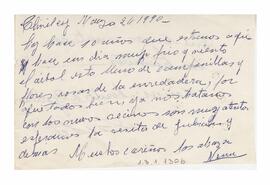 Chimley Marzo 26 1990 -
Hoy hace 10 años que estamos aquí
hace un día muy frio y viento
el arbol esta lleno de campanillas y
flores rosas de la enredadera, por
aquí todos bien ya nos tratamos
con los nuevos vecinos son muy atentos
esperamos la visita de Fabiana y
demas. Muchos cariños los abraza
Nena
13.1.1306